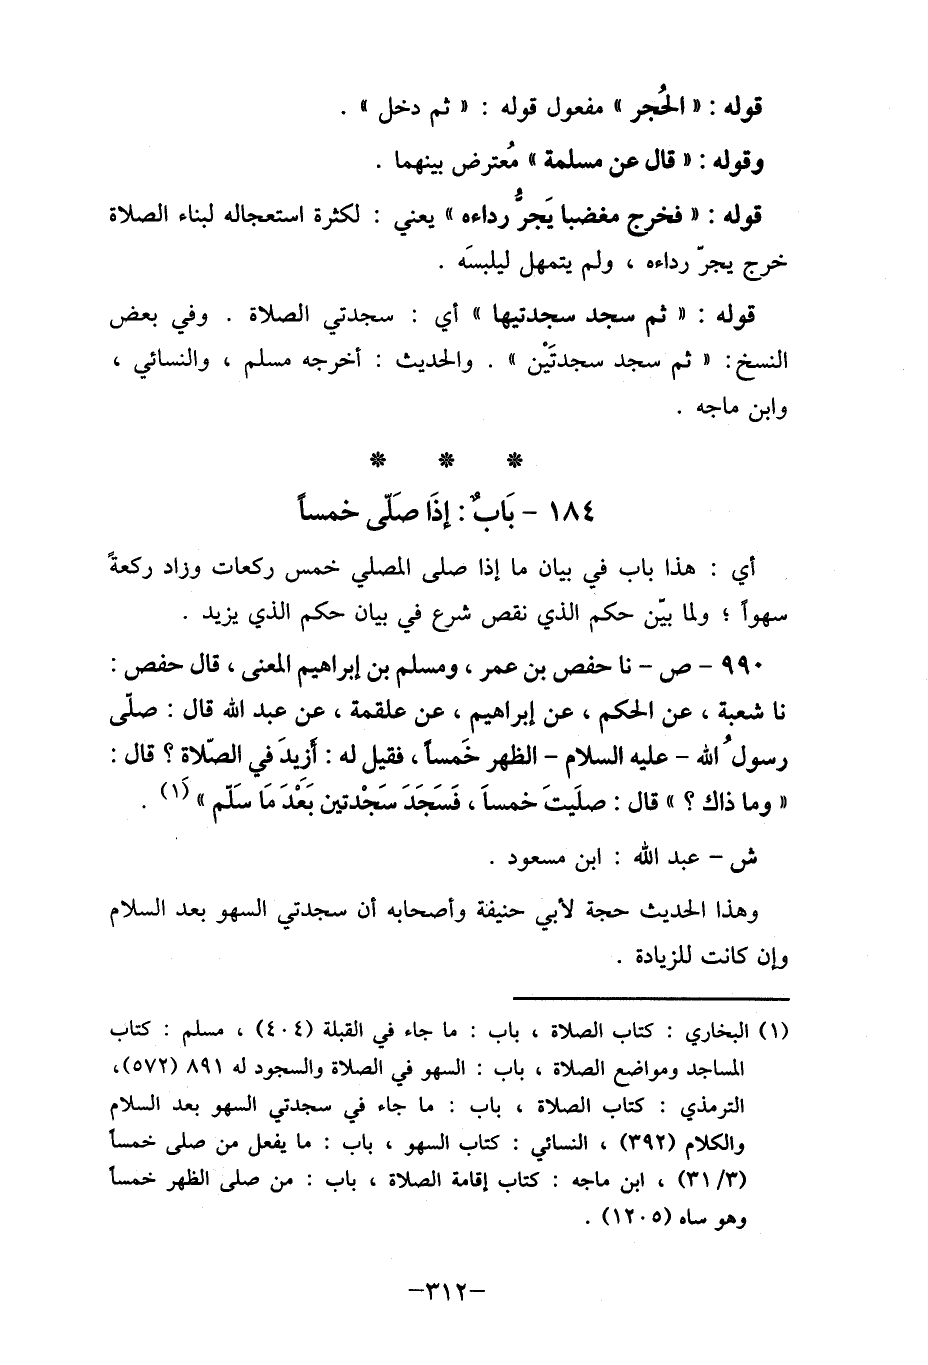 قوله : « الحُجر » مفعول قوله : « ثم دخل » .
وقوله : « قال عن مسلمة » مُعترض بينهما .
قوله : « فخرج مغضبا يَجرُّ رداءه » يعني : لكثرة استعجاله لبناء الصلاة
خرج يجرّ رداءه ، ولم يتمهل ليلبسَه .
قوله : « ثم سجد سجدتيها » أي : سجدتي الصلاة . وفي بعض
النسخ : « ثم سجد سجدتَيْن » . والحديث : أخرجه مسلم ، والنسائي ،
وابن ماجه .
* * *
١٨٤ - بَابٌ : إِذَا صَلّى خمساً
أي : هذا باب في بيان ما إذا صلى المصلي خمس ركعات وزاد ركعةً
سهواً ؛ ولما بيّن حكم الذي نقص شرع في بيان حكم الذي يزيد .
٩٩٠ - ص - نا حفص بن عمر ، ومسلم بن إبراهيم المعنى ، قال حفص :
نا شعبة ، عن الحكم ، عن إبراهيم ، عن علقمة ، عن عبد الله قال : صلّى
رسولُ الله - عليه السلام - الظهر خَمساً ، فقيل له : أَزِيدَ في الصّلاة ؟ قال :
« وما ذاك ؟ » قال : صليتَ خمساً ، فَسَجَدَ سَجْدتين بَعْدَ مَا سَلّم » (١) .
ش - عبد الله : ابن مسعود .
وهذا الحديث حجة لأبي حنيفة وأصحابه أن سجدتي السهو بعد السلام
وإن كانت للزيادة .
(١) البخاري : كتاب الصلاة ، باب : ما جاء في القبلة (٤٠٤) ، مسلم : كتاب
المساجد ومواضع الصلاة ، باب : السهو في الصلاة والسجود له ٨٩١ (٥٧٢)،
الترمذي : كتاب الصلاة ، باب : ما جاء في سجدتي السهو بعد السلام
والكلام (٣٩٢) ، النسائي : كتاب السهو ، باب : ما يفعل من صلى خمساً
(٣١/٣) ، ابن ماجه : كتاب إقامة الصلاة ، باب : من صلى الظهر خمساً
وهو ساه (١٢٠٥) .
-٣١٢-